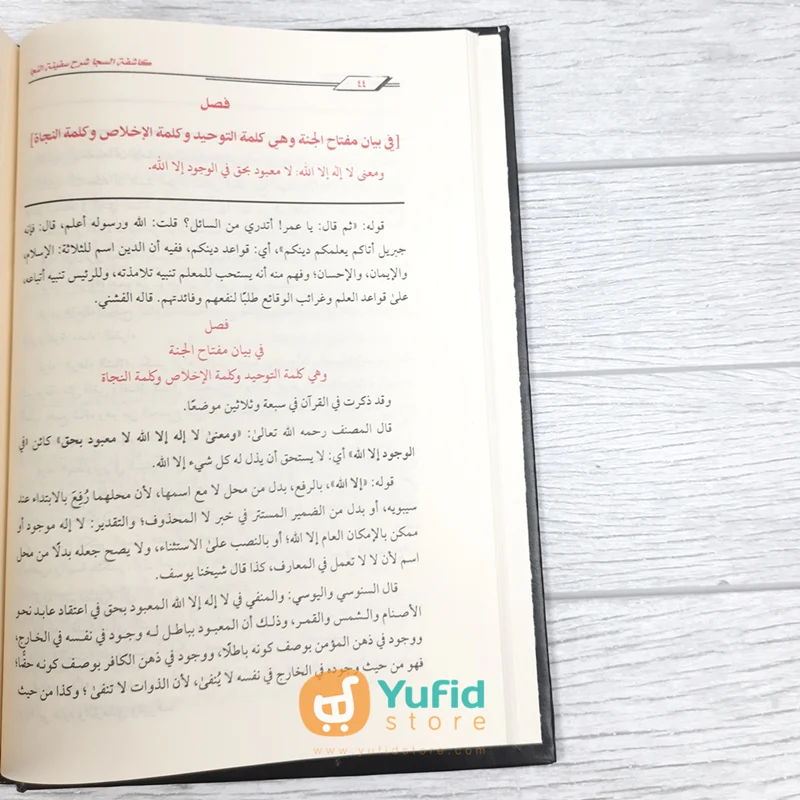 كاشفة السجا شرح سفينة النجا
٤٤
فصل
[في بيان مفتاح الجنة وهي كلمة التوحيد وكلمة الإخلاص وكلمة النجاة]
ومعنى لا إله إلا الله: لا معبود بحق في الوجود إلا الله.
قوله: «ثم قال: يا عمر! أتدري من السائل؟ قلت: الله ورسوله أعلم، قال: فإنه
جبريل أتاكم يعلمكم دينكم»، أي: قواعد دينكم، ففيه أن الدين اسم للثلاثة: الإسلام،
والإيمان، والإحسان؛ وفهم منه أنه يستحب للمعلم تنبيه تلامذته، وللرئيس تنبيه أتباعه،
على قواعد العلم وغرائب الوقائع طلبًا لنفعهم وفائدتهم. قاله القشني.
فصل
في بيان مفتاح الجنة
وهي كلمة التوحيد وكلمة الإخلاص وكلمة النجاة
وقد ذكرت في القرآن في سبعة وثلاثين موضعًا.
قال المصنف رحمه الله تعالى: «ومعنى لا إله إلا الله لا معبود بحق» كائن «في
الوجود إلا الله» أي: لا يستحق أن يذل له كل شيء إلا الله.
قوله: «إلا الله»، بالرفع، بدل من محل لا مع اسمها، لأن محلهما رُفِعَ بالابتداء عند
سيبويه، أو بدل من الضمير المستتر في خبر لا المحذوف؛ والتقدير: لا إله موجود أو
ممكن بالإمكان العام إلا الله؛ أو بالنصب على الاستثناء، ولا يصح جعله بدلًا من محل
اسم لأن لا لا تعمل في المعارف، كذا قال شيخنا يوسف.
قال السنوسي واليوسي: والمنفي في لا إله إلا الله المعبود بحق في اعتقاد عابد نحو
الأصنام والشمس والقمر، وذلك أن المعبود بباطل له وجود في نفسه في الخارج،
ووجود في ذهن المؤمن بوصف كونه باطلًا، ووجود في ذهن الكافر بوصف كونه حقًّا؛
فهو من حيث وجوده في الخارج في نفسه لا يُنفىٰ، لأن الذوات لا تنفىٰ؛ وكذا من حيث
Yufid
store
www.yufidstore.com